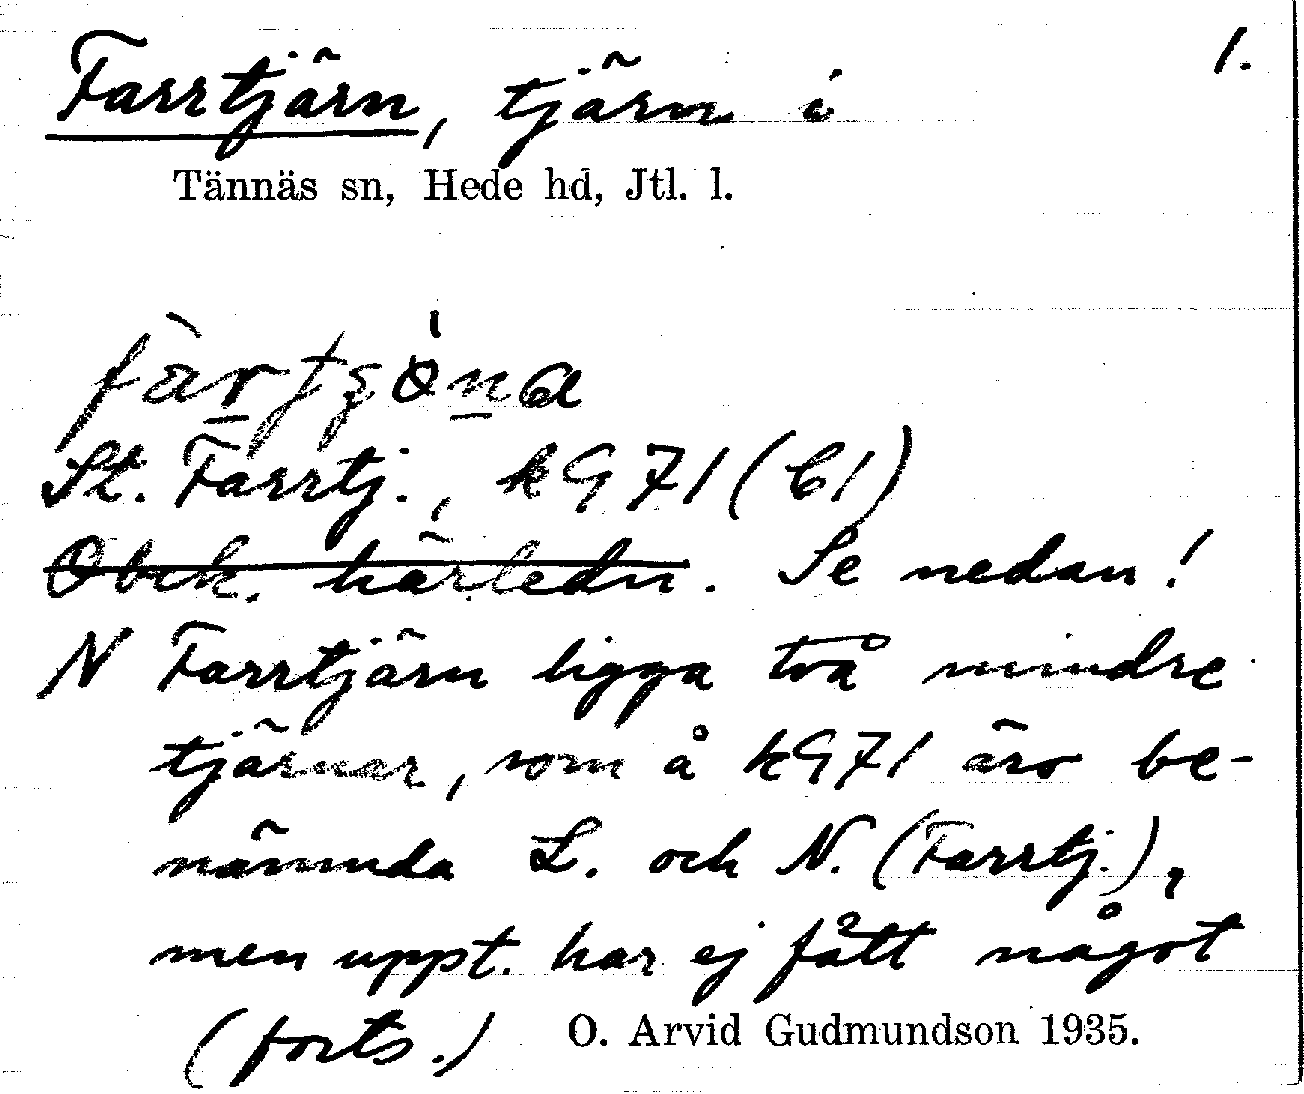 Farrtjärn, tjärn i 1.
Tännäs sn, Hede hd, Jtl. l.
St. Farrtj., k971(C1)
Obek. härledn. Se nedan!
N Farrtjärn ligga två mindre
tjärnar, som å k971 äro be-
nämnda L. och N. (Farrtj.),
men uppt. har ej fått något
(forts.) O. Arvid Gudmundson 1935.